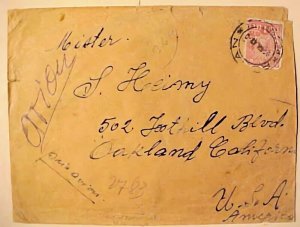 Mister.
avion
S. Heimy
502 Foothill Blvd.
Oakland California
U.S.A.
America